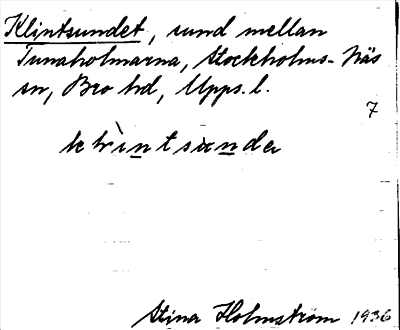 Klintsundet, sund mellan
Tunaholmarna, Stockholms-Näs
sn, Bro hd, Upps.l.
7
Stina Holmström 1936